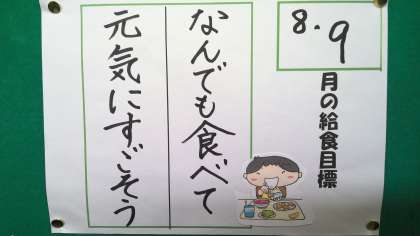 8.9
月の給食目標
なんでも食べて
元気にすごそう